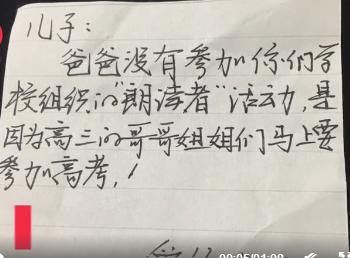 儿子：
爸爸没有参加你们学
校组织的“朗读者”活动，是
因为高三的哥哥姐姐们马上要
参加高考，！
00:05/01:09